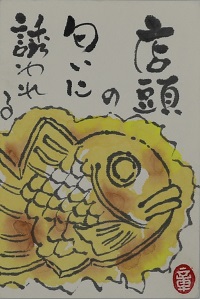 店頭
の
匂いに
誘われ
る
童